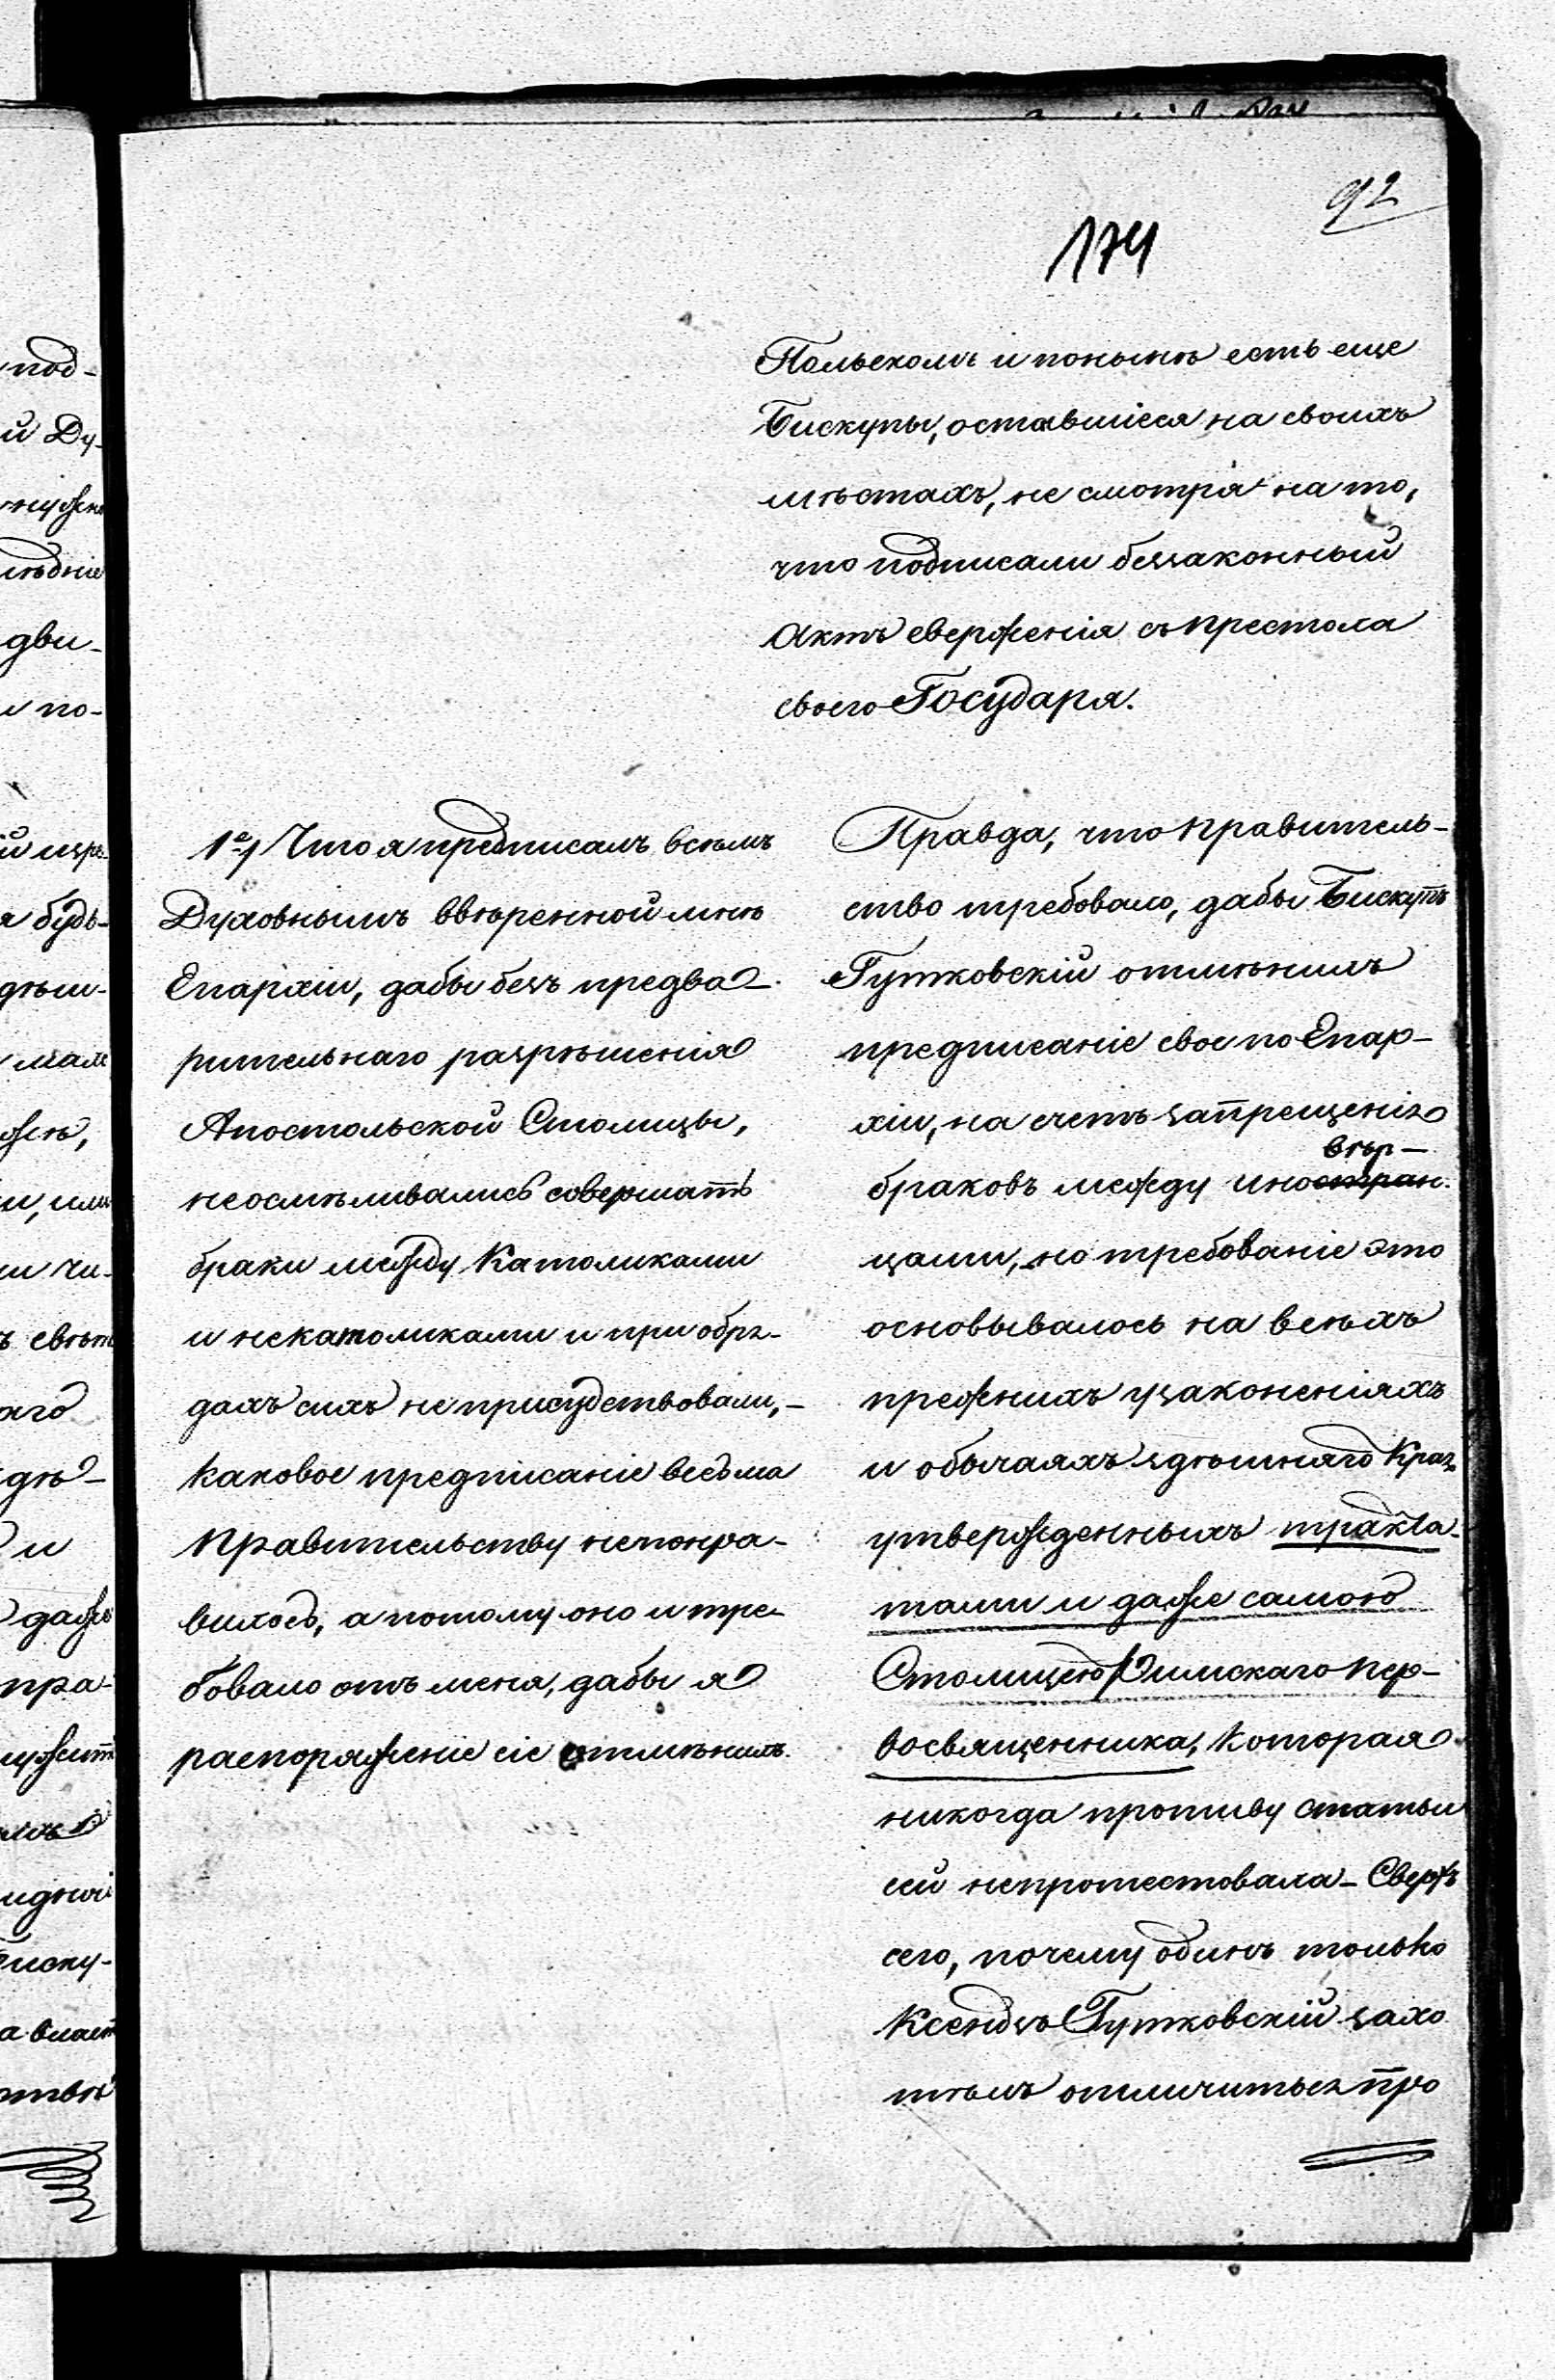 92
174
Польскомъ и понынѣ есть еще
Бискупы, оставшіеся на своихъ
мѣстахъ, не смотря на то,
что подписали беззаконный
Актъ сверженія съ престола
своего Государя.
1е/ Что я предписалъ всѣмъ
Духовнымъ ввѣренной мнѣ
Епархіи, дабы безъ предва-
рительнаго разрѣшенія
Апостольской Столицы,
неосмѣливались совершать
браки между Католиками
и некатоликами и при обря-
дахъ сихъ не присудствовали,-
каковое предписаніе весьма
Правительству непонра-
вилось, а потому оно и тре
бовало отъ меня, дабы я
распоряженіе сіе отмѣнилъ.
Правда, что Правитель-
ство требовало, дабы Бискупъ
Гутковскій отмѣнилъ
предписаніе свое по Епар-
хіи, на счетъ запрещенія
вѣр-
браковъ между иностран.
цами, но требованіе это
основывалось на всѣхъ
прежнихъ узаконеніяхъ
и обычаяхъ здѣшняго Края,
утвержденныхъ тракта-
тами и даже самою
Столицею Римскаго Пер-
восвященника, которая
никогда противу статьи
сей непротестовала - Сверхъ
сего, почему одинъ только
Ксендзъ Гутковскій захо
тѣлъ отличиться про
под-
й Ду-
нужно
дви-
и по-
я будь-
и, или
ъ свѣт
аго
дѣ-
и
даже
пра-
Биску-
а власт